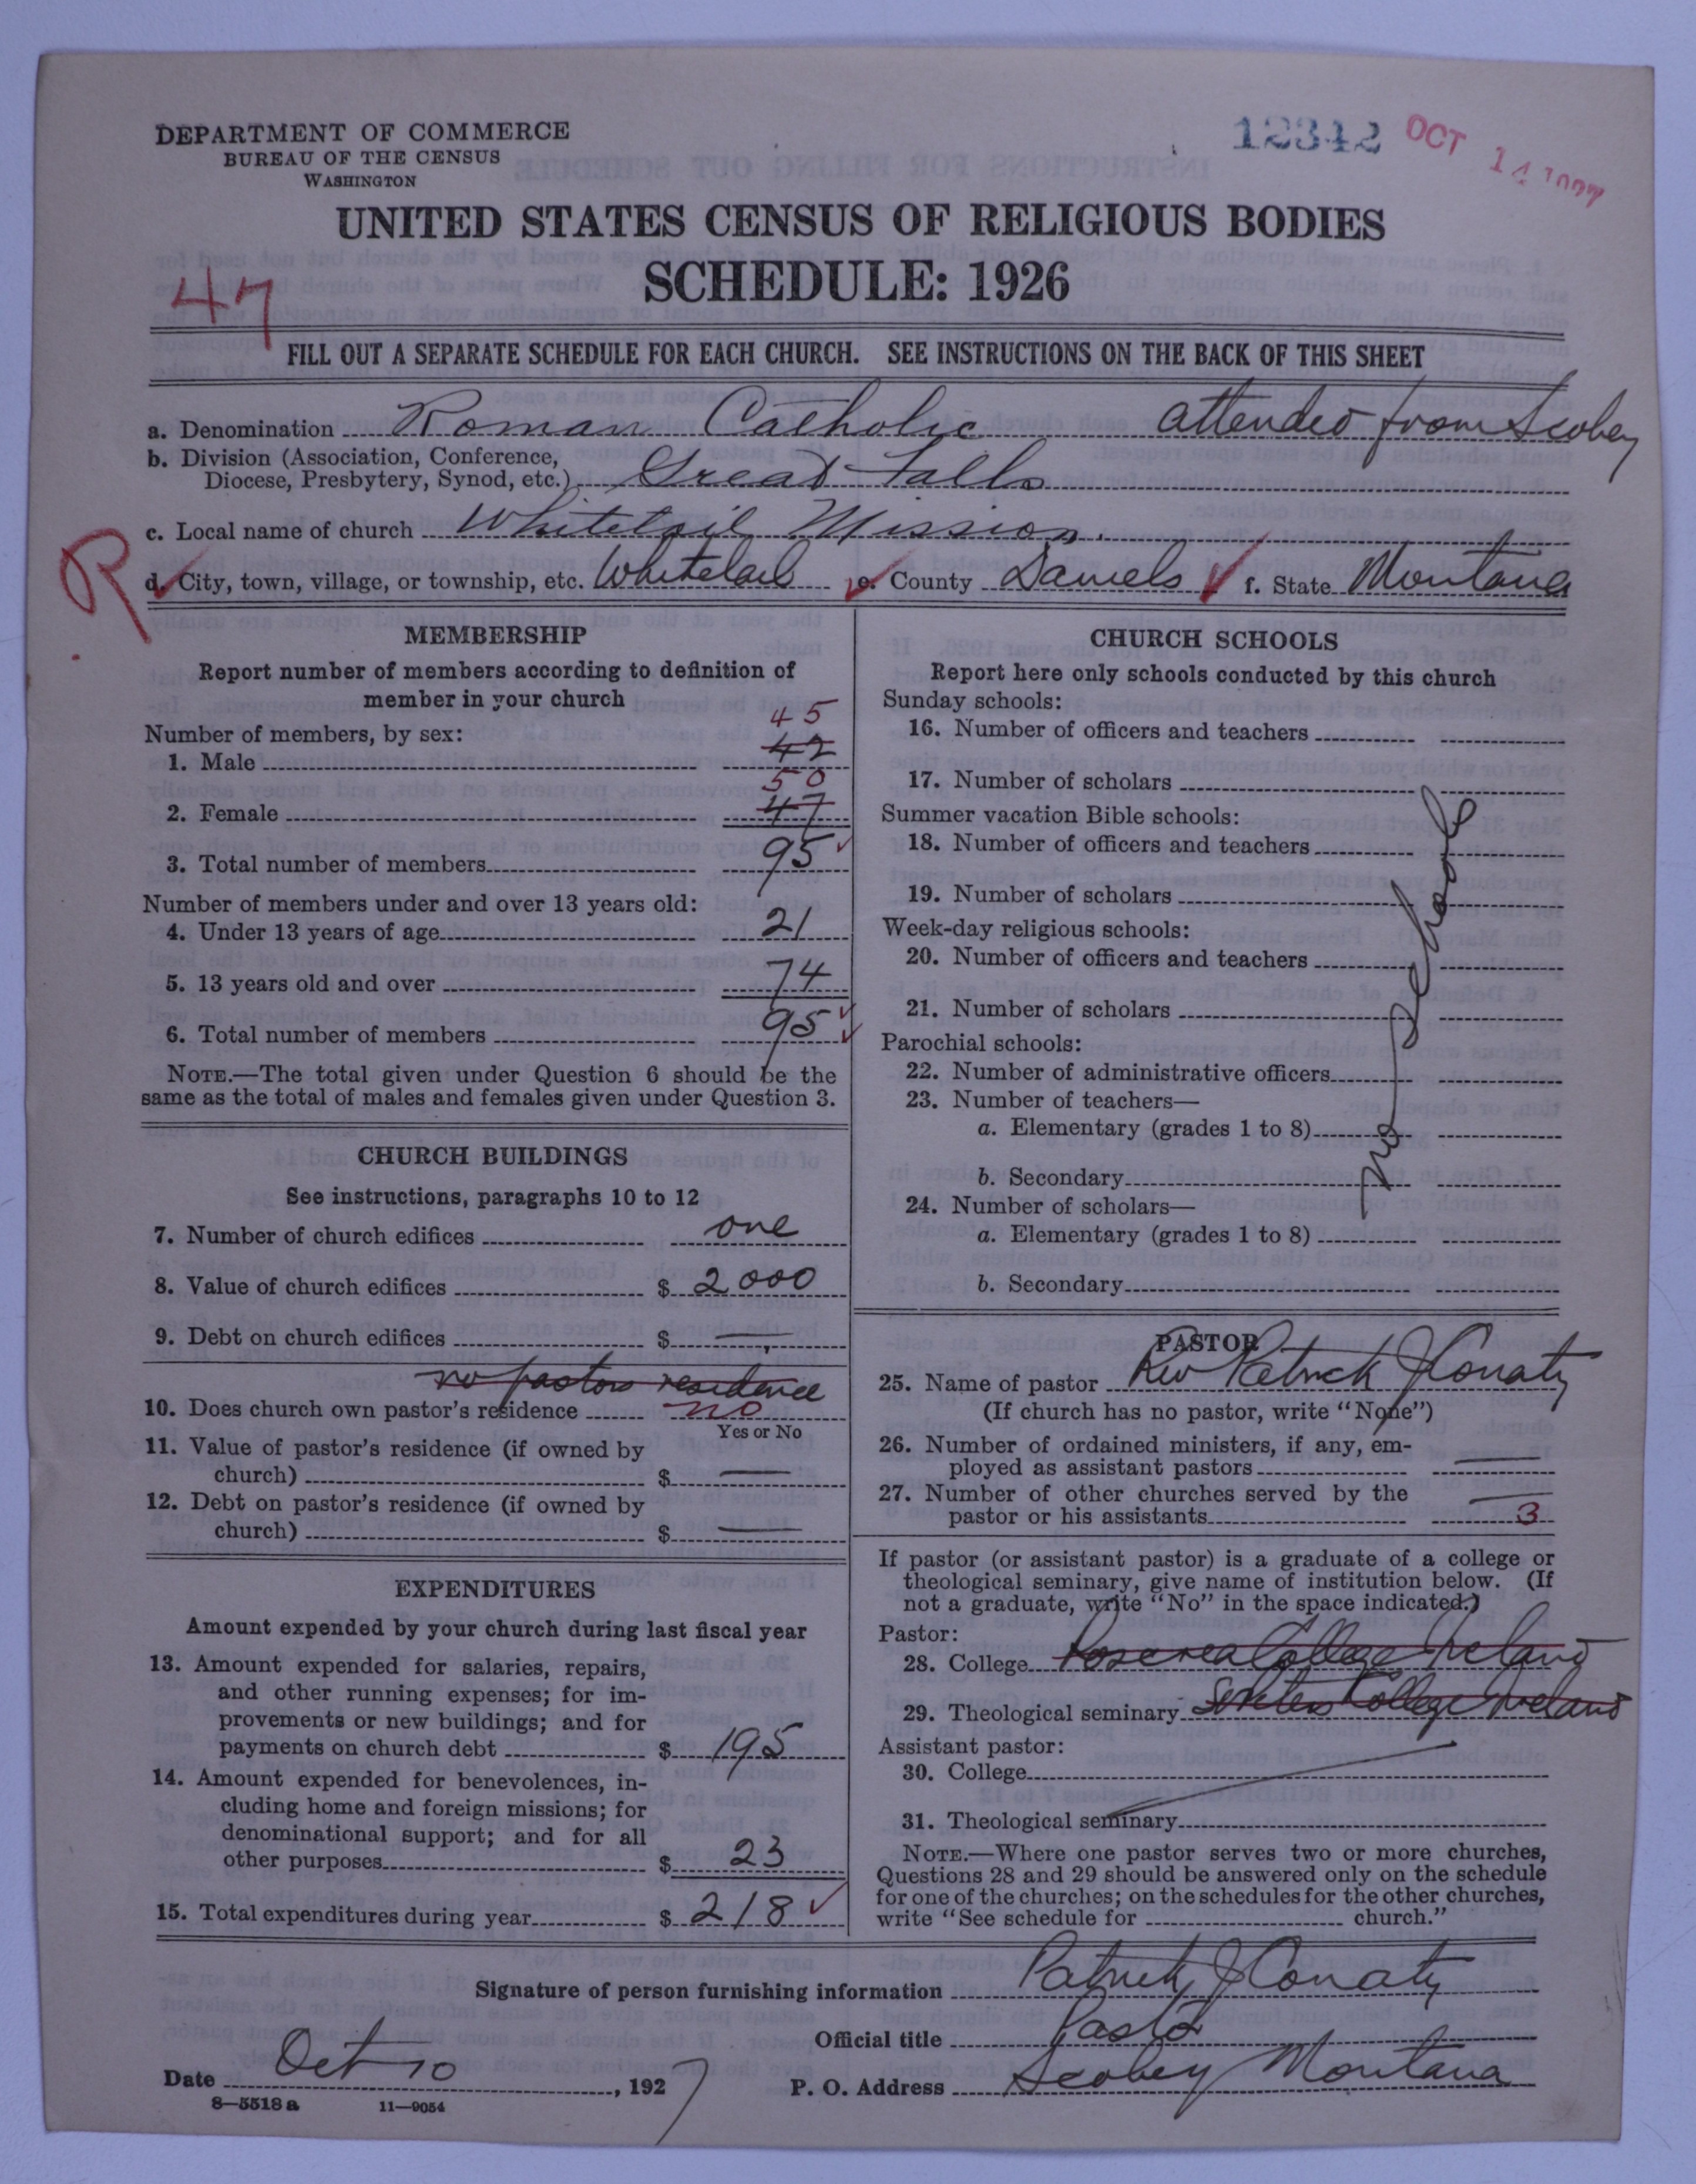 DEPARTMENT OF COMMERCE
BUREAU OF THE CENSUS
WASHINGTON
12342 OCT 14 1927
UNITED STATES CENSUS OF RELIGIOUS BODIES
SCHEDULE: 1926
47
FILL OUT A SEPARATE SCHEDULE FOR EACH CHURCH. SEE INSTRUCTIONS ON THE BACK OF THIS SHEET
a. Denomination Roman Catholic attended from Scobey
b. Division (Association, Conference,
Diocese, Presbytery, Synod, etc.) Great Falls
c. Local name of church Whitetail Mission.
R
d. City, town, village, or township, etc. Whitetail e. County Daniels f. State Montana
MEMBERSHIP
Report number of members according to definition of
member in your church
Number of members, by sex:
45
1. Male 42
50
2. Female 47
3. Total number of members 95
Number of members under and over 13 years old:
4. Under 13 years of age 21
5. 13 years old and over 74
6. Total number of members 95
NOTE.—The total given under Question 6 should be the
same as the total of males and females given under Question 3.
CHURCH BUILDINGS
See instructions, paragraphs 10 to 12
7. Number of church edifices one
8. Value of church edifices $ 2000
9. Debt on church edifices $ —
no pastors residence
10. Does church own pastor's residence no
Yes or No
11. Value of pastor's residence (if owned by
church) $ —
12. Debt on pastor's residence (if owned by
church) $ —
EXPENDITURES
Amount expended by your church during last fiscal year
13. Amount expended for salaries, repairs,
and other running expenses; for im-
provements or new buildings; and for
payments on church debt $ 195
14. Amount expended for benevolences, in-
cluding home and foreign missions; for
denominational support; and for all
other purposes $ 23
15. Total expenditures during year $ 218
CHURCH SCHOOLS
Report here only schools conducted by this church
Sunday schools:
16. Number of officers and teachers
17. Number of scholars
Summer vacation Bible schools:
18. Number of officers and teachers
19. Number of scholars
Week-day religious schools:
20. Number of officers and teachers
21. Number of scholars
Parochial schools:
22. Number of administrative officers
23. Number of teachers—
a. Elementary (grades 1 to 8)
b. Secondary
24. Number of scholars—
a. Elementary (grades 1 to 8)
b. Secondary
no schools
PASTOR
25. Name of pastor Rev Patrick J Conaty
(If church has no pastor, write "None")
26. Number of ordained ministers, if any, em-
ployed as assistant pastors —
27. Number of other churches served by the
pastor or his assistants 3
If pastor (or assistant pastor) is a graduate of a college or
theological seminary, give name of institution below. (If
not a graduate, write "No" in the space indicated.)
Pastor:
28. College Roscrea College Ireland
29. Theological seminary College Ireland
Assistant pastor:
30. College
31. Theological seminary
NOTE.—Where one pastor serves two or more churches,
Questions 28 and 29 should be answered only on the schedule
for one of the churches; on the schedules for the other churches,
write "See schedule for church."
Signature of person furnishing information Patrick J Conaty
Official title Pastor
Date Oct 10, 1927
P. O. Address Scobey Montana
8—5518 a 11—9054